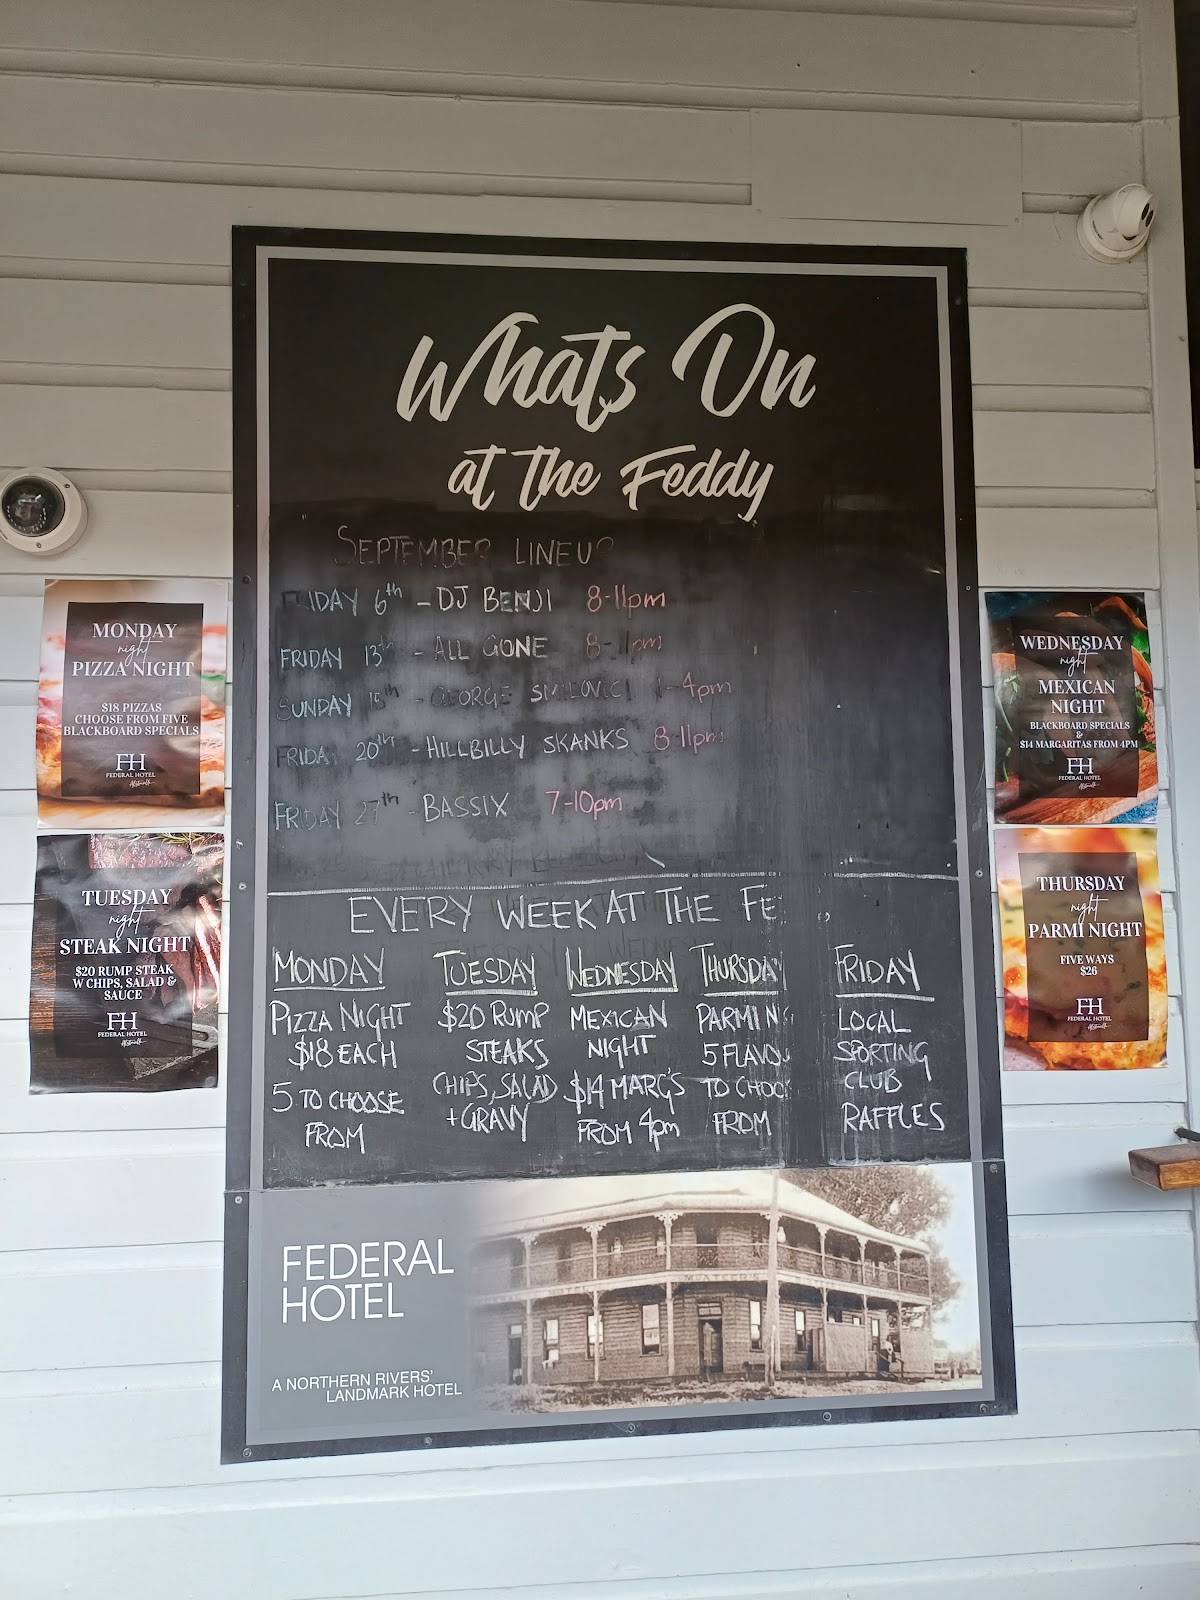 Whats On
at the Feddy
SEPTEMBER LINEUP
FRIDAY 6th - DJ BENJI 8-11pm
FRIDAY 13th - ALL GONE 8-11pm
SUNDAY 15th - GEORGE SMILOVICI 1-4pm
FRIDAY 20th - HILLBILLY SKANKS 8-11pm
FRIDAY 27th - BASSIX 7-10pm
EVERY WEEK AT THE FE
MONDAY
PIZZA NIGHT
$18 EACH
5 TO CHOOSE
FROM
TUESDAY
$20 RUMP
STEAKS
CHIPS, SALAD
+ GRAVY
WEDNESDAY
MEXICAN
NIGHT
$14 MARG'S
FROM 4pm
THURSDAY
PARMI N
5 FLAVOU
TO CHOOS
FROM
FRIDAY
LOCAL
SPORTING
CLUB
RAFFLES
FEDERAL
HOTEL
A NORTHERN RIVERS'
LANDMARK HOTEL
MONDAY
night
PIZZA NIGHT
$18 PIZZAS
CHOOSE FROM FIVE
BLACKBOARD SPECIALS
FH
FEDERAL HOTEL
Alstonville
TUESDAY
night
STEAK NIGHT
$20 RUMP STEAK
W CHIPS, SALAD &
SAUCE
FH
FEDERAL HOTEL
Alstonville
WEDNESDAY
night
MEXICAN
NIGHT
BLACKBOARD SPECIALS
&
$14 MARGARITAS FROM 4PM
FH
FEDERAL HOTEL
Alstonville
THURSDAY
night
PARMI NIGHT
FIVE WAYS
$26
FH
FEDERAL HOTEL
Alstonville